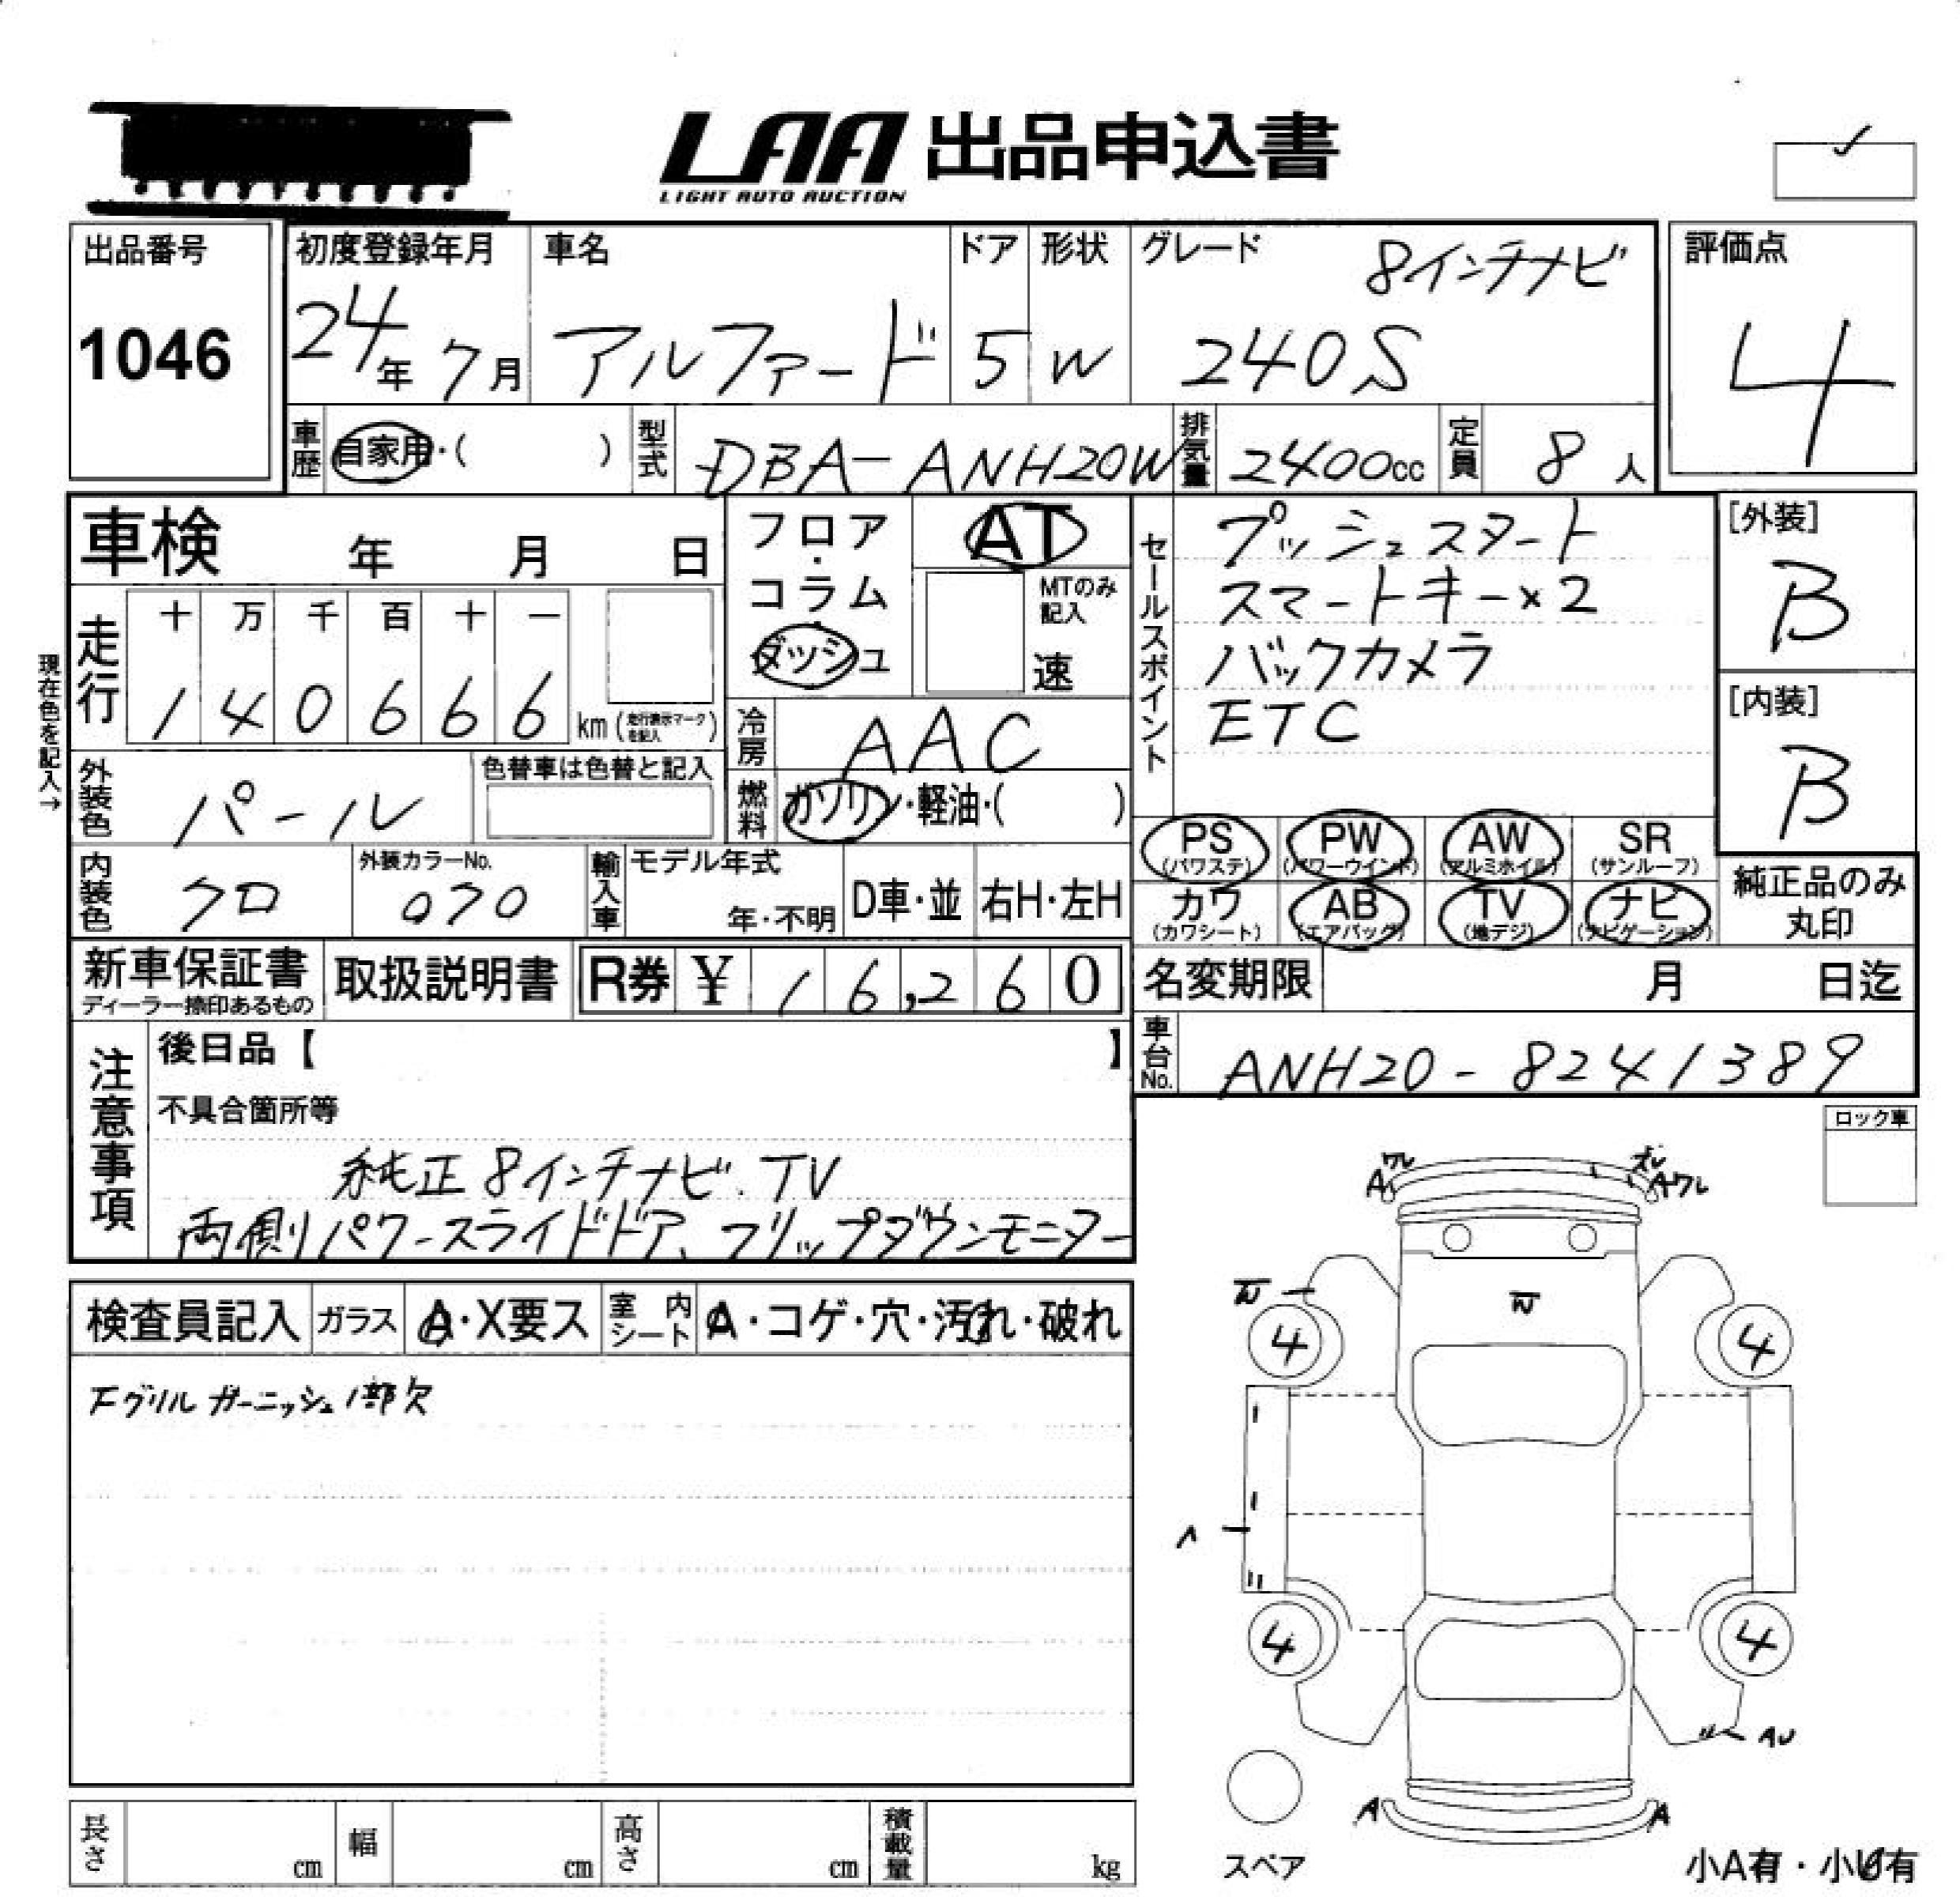 LAA 出品申込書
LIGHT AUTO AUCTION
出品番号
1046
初度登録年月
24年 7月
車名
アルファード
ドア
5
形状
W
グレード
8インチナビ
240S
評価点
4
車歴
自家用・( )
型式
DBA-ANH20W
排気量
2400cc
定員
8人
車検 年 月 日
フロア・コラム・ダッシュ
AT
MTのみ記入
速
セールスポイント
プッシュスタート
スマートキー×2
バックカメラ
ETC
[外装]
B
[内装]
B
現在色を記入→
走行
十 万 千 百 十 一
1 4 0 6 6 6 km (走行表示マークを記入)
冷房
AAC
外装色
パール
色替車は色替と記入
燃料
ガソリン・軽油・( )
PS (パワステ)
PW (パワーウインド)
AW (アルミホイル)
SR (サンルーフ)
カワ (カワシート)
AB (エアバッグ)
TV (地デジ)
ナビ (ナビゲーション)
純正品のみ丸印
内装色
クロ
外装カラーNo.
070
輸入車
モデル年式
年・不明
D車・並
右H・左H
新車保証書
ディーラー捺印あるもの
取扱説明書
R券 ¥ 16,260
名変期限 月 日迄
車台No.
ANH20-8241389
注意事項
後日品【 】
不具合箇所等
純正8インチナビ.TV
両側パワースライドドア、フリップダウンモニター
ロック車
検査員記入
ガラス
A・X要ス
室内シート
A・コゲ・穴・汚れ・破れ
Fグリルガーニッシュ1部欠
ワレ
A
Aワレ
W
W
4
4
4
4
AU
A
A
スペア
小A有・小U有
長さ cm
幅 cm
高さ cm
積載量 kg